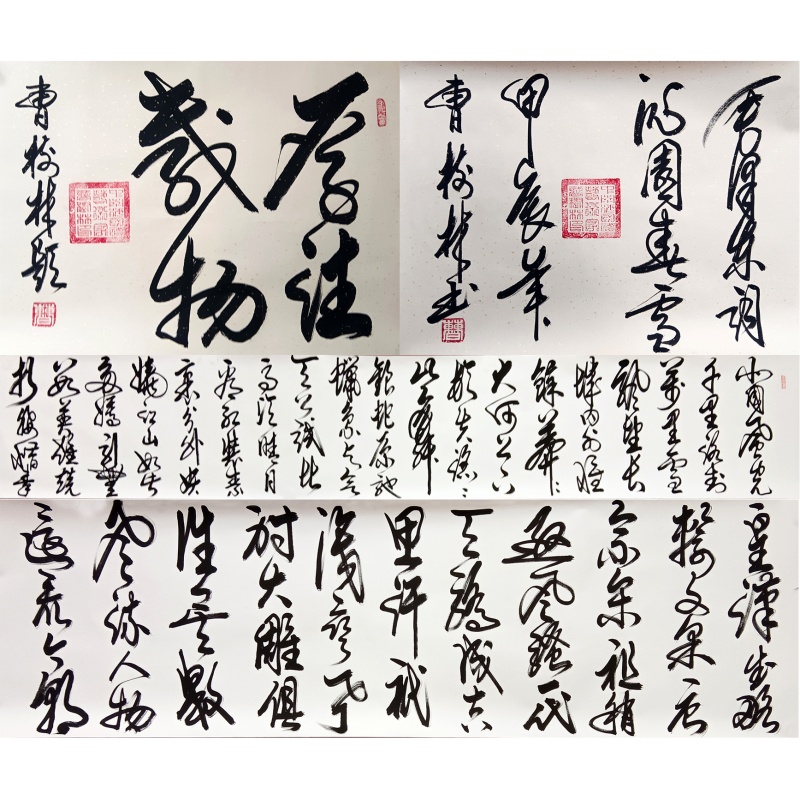 厚德
載物
曹樹林題
毛澤東詞
沁園春雪
甲辰年
曹樹林書
北國風光
千里冰封
萬里雪
飄望長
城内外惟
餘莽々
大河上下
頓失滔々
山舞
銀蛇原馳
蠟象欲与
天公試比
高須晴日
看紅裝素
裹分外妖
嬈江山如此
多嬌引無
數英雄競
折腰惜秦
皇漢武略
輸文采唐
宗宋祖稍
遜風騷一代
天驕成吉
思汗祇
識彎弓
射大雕俱
往矣數
風流人物
還看今朝